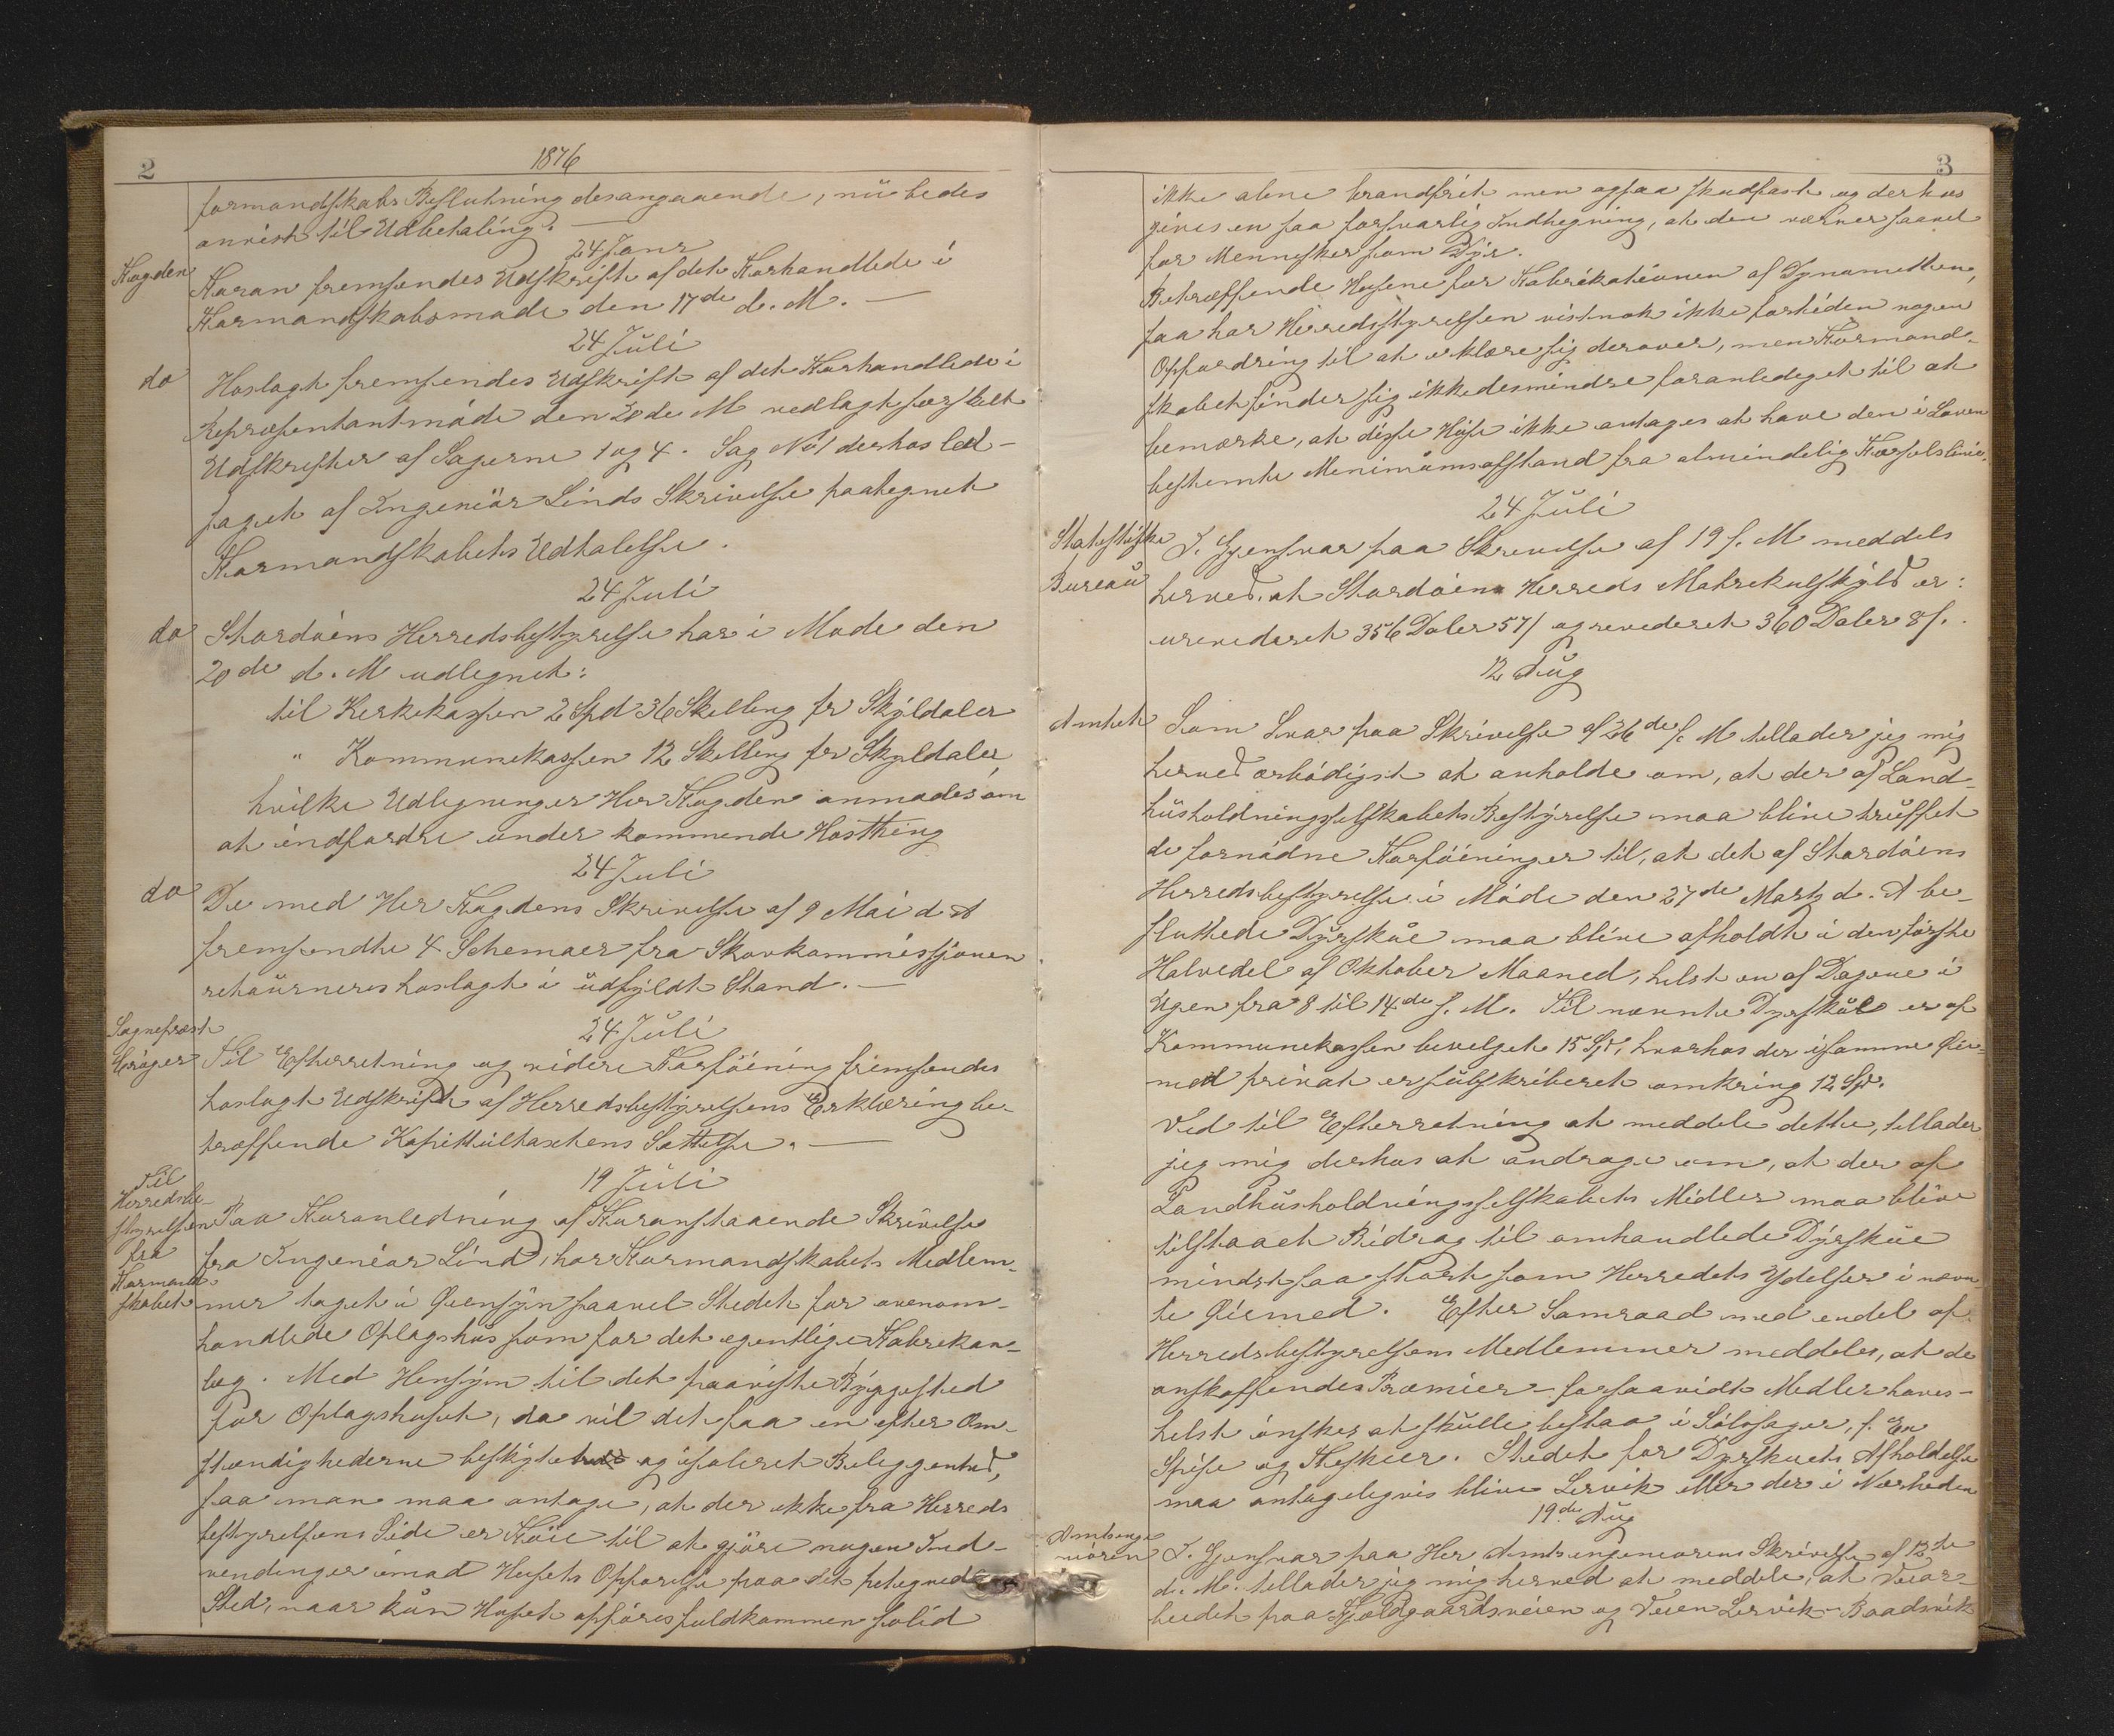 2
1876
formandskabs Beslutning desangaaende, nu bedes
anvist til Udbetaling. —
24 Janr
Fogden
Foran fremsendes Udskrift af det Forhandlede i
Formandskabsmøde den 17de d. M. —
24 Juli
do
Hoslagt fremsendes Udskrift af det Forhandlede i
Repræsentantmøde den 20 de M vedlagt særskilt
Udskrifter af Sagerne 1 og 4. Sag No 1 derhos led-
saget af Ingeniør Linds Skrivelse paategnet
Formandskabets Udtalelse.
24 Juli
do
Stordøens Herredsbestyrelse har i Møde den
20de d. M udlignet:
til Kirkekassen 2 Spd 36 Skilling pr Skyldaler
" Kommunekassen 12 Skilling pr Skyldaler,
hvilke Udligninger Her Fogden anmodes om
at indfordre under kommende Høstthing
24 Juli
do
De med Her Fogdens Skrivelse af 9 Mai d. A
fremsendte 4 Schemaer fra Skovkommissjonen
retourneres hoslagt i udfyldt Stand. —
24 Juli
Sognepræst
Krøger
Til Efterretning og videre Forføining fremsendes
hoslagt Udskrift af Herredsbestyrelsens Erklæring be-
træffende Kapitultaxtens Sættelse. —
19 Juli
Til
Herredsbe-
styrelsen
fra
Formand-
skabet
Paa Foranledning af Foranstaaende Skrivelse
fra Ingeniør Lind, har Formandskabets Medlem-
mer taget i Øiensyn saavel Stedet for ovenom-
handlede Oplagshus som for det egentlige Fabrikan-
læg. Med Hensyn til det paaviste Byggested
for Oplagshuset, da vil det faa en efter Om-
stændighederne beskyttet og isoleret Beliggenhed,
saa man maa antage, at der ikke fra Herreds
bestyrelsens Side er Føie til at gjøre nogen Ind-
vendinger imod Husets Opførelse paa det betegnede
Sted, naar kun Huset opføres fuldkommen solid
3
ikke alene brandfrit men ogsaa skudfast og derhos
gives en saa forsvarlig Indhegning, at den værner saavel
for Mennesker som Dyr.
Betræffende Husene for Fabrikationen af Dynamitten,
saa har Herredsstyrelsen vistnok ikke forhiden nogen
Opfordring til at erklære sig derover, men Formand-
skabet finder sig ikkedesmindre foranlediget til at
bemærke, at disse Huse ikke antages at have den i Loven
bestemte Minimumsafstand fra almindelig Færselslinie.
24 Juli
Statistiske
Bureau
I Gjensvar paa Skrivelse af 19 f. M meddels
herved, at Stordøens Herreds Matrekulskyld er:
urevideret 356 Daler 57/ og revideret 360 Daler 8/.
12 Aug
Amtet
Som Svar paa Skrivelse af 26de f. M tillader jeg mig
herved ærbødigst at anholde om, at der af Land-
husholdningsselskabets Bestyrelse maa blive truffet
de fornødne Forføininger til, at det af Stordøens
Herredsbestyrelse i Møde den 27de Marts d. A be-
sluttede Dyrskue maa blive afholdt i den første
Halvedel af Oktober Maaned, helst en af Dagene i
Ugen fra 8 til 14de s. M. Til nævnte Dyrskue er af
Kommunekassen bevilget 15 Spd, hvorhos der isamme Øie-
med privat er subskriberet omkring 12 Spd.
Ved til Efterretning at meddele dette, tillader
jeg mig derhos at andrage om, at der af
Landhusholdningsselskabets Midler maa blive
tilstaaet Bidrag til omhandlede Dyrskue
mindst saa stort som Herredets Ydelser i nævn-
te Øiemed. Efter Samraad med endel af
Herredsbestyrelsens Medlemmer meddeles, at de
anskaffendes Præmier – forsaavidt Midler haves –
helst ønskes at skulle bestaa i Sølvsager, f. Ex
Spise og Theskeer. Stedet for Dyrskuets Afholdelse
maa antageligvis blive Lervik eller der i Nærheden
19de Aug
Amtsinge-
niøren
I Gjensvar paa Her Amtsingeniørens Skrivelse af 12te
d. M. tillader jeg mig herved at meddele, at Veiar-
beidet paa Fjeldgaardsveien og Veien Lervik – Baadsvik